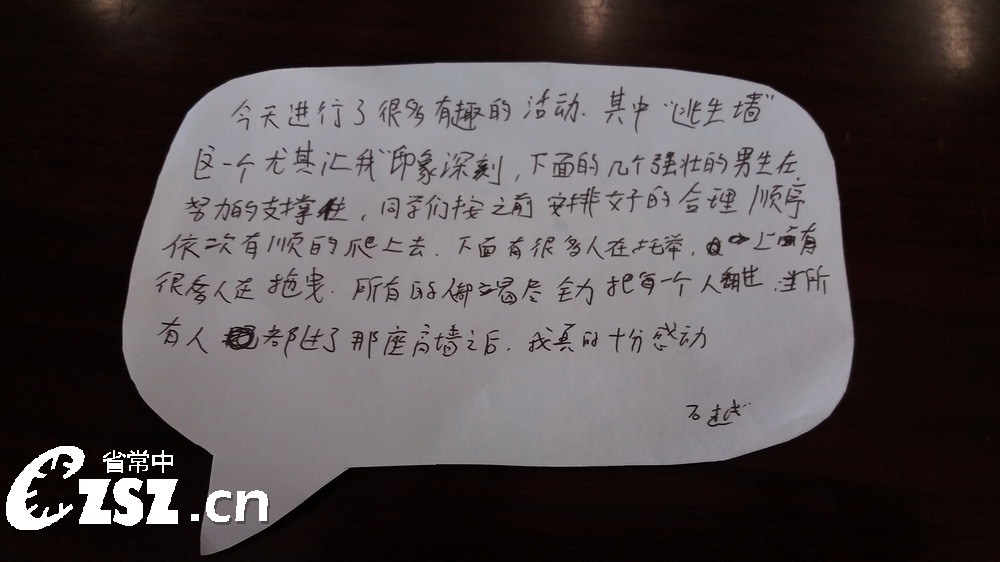 今天进行了很多有趣的活动.其中“逃生墙”
这一个尤其让我印象深刻,下面的几个强壮的男生在
努力的支撑住,同学们按之前安排好的合理顺序
依次有顺的爬上去.下面有很多人在托举,上面有
很多人在拖曳.所有的人都竭尽全力把每一个人翻过.当所
有人都过了那座高墙之后,我真的十分感动
石越
省常中
CZSZ.cn